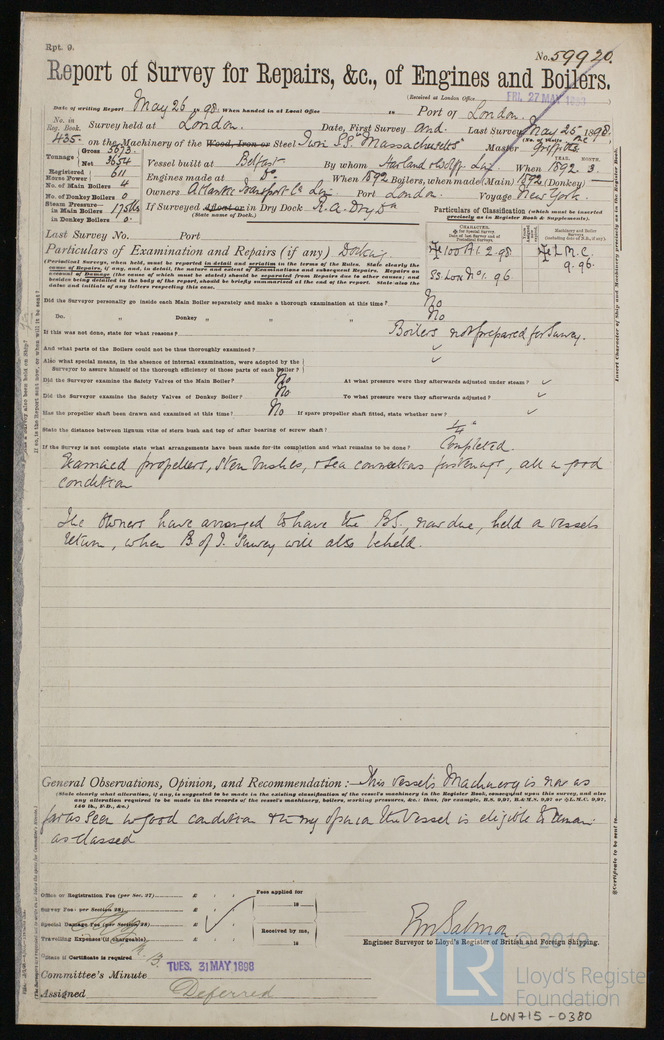 Rpt. 9.
No. 59920.
Report of Survey for Repairs, &c., of Engines and Boilers.
(Received at London Office FRI. 27 MAY 1898)
Date of writing Report May 26 1898. When handed in at Local Office 18 Port of London.
No. in Reg. Book. 435 Survey held at London. Date, First Survey and Last Survey May 25 1898
(No. of Visits one)
on the Machinery of the Wood, Iron or Steel Twin S.S. "Massachusetts" Master Griffiths
Tonnage Gross 5673 Net 3654
Vessel built at Belfast By whom Harland & Wolff Ld. When 1892. 3.
YEAR. MONTH.
Registered Horse Power 611
Engines made at Do. When 1892 Boilers, when made (Main) 1892 (Donkey)
No. of Main Boilers 4
No. of Donkey Boilers 0
Owners Atlantic Transport Co. Lim. Port London. Voyage New York.
Steam Pressure in Main Boilers 175 lbs
in Donkey Boilers 0
If Surveyed Afloat or in Dry Dock R. A. Dry Dk
(State name of Dock.)
Particulars of Classification (which must be inserted precisely as in Register Book & Supplements).
Last Survey No. Port
CHARACTER.
100 A1. 2.98
SS. Lon No 1. 96
L.M.C. 9.96.
Particulars of Examination and Repairs (if any) Docking
(Periodical Surveys, when held, must be reported in detail and seriatim in the terms of the Rules. State clearly the cause of Repairs, if any, and, in detail, the nature and extent of Examinations and subsequent Repairs. Repairs on account of Damage (the cause of which must be stated) should be separated from Repairs due to other causes; and besides being detailed in the body of the report, should be briefly summarized at the end of the report. State also the date and initials of any letters respecting this case.
Did the Surveyor personally go inside each Main Boiler separately and make a thorough examination at this time? No
Do. Donkey " " " " No
If this was not done, state for what reasons? Boilers not prepared for Survey.
And what parts of the Boilers could not be thus thoroughly examined?
Also what special means, in the absence of internal examination, were adopted by the Surveyor to assure himself of the thorough efficiency of those parts of each Boiler?
Did the Surveyor examine the Safety Valves of the Main Boiler? No At what pressure were they afterwards adjusted under steam?
Did the Surveyor examine the Safety Valves of Donkey Boiler? No To what pressure were they afterwards adjusted?
Has the propeller shaft been drawn and examined at this time? No If spare propeller shaft fitted, state whether new?
State the distance between lignum vitæ of stern bush and top of after bearing of screw shaft? 1/4"
If the Survey is not complete state what arrangements have been made for its completion and what remains to be done? Completed.
Examined propellers, Stern bushes, & Sea connections fastenings, all in good
condition
The Owners have arranged to have the B.S., now due, held on vessels
return, when B. of T. Survey will also be held.
General Observations, Opinion, and Recommendation:— This vessels Machinery is now as
(State clearly what alteration, if any, is suggested to be made in the existing classification of the vessel's machinery in the Register Book, consequent upon this survey, and also any alteration required to be made in the records of the vessel's machinery, boilers, working pressures, &c.: thus, for example, B.S. 9,97, B.&M.S. 9,97 or L.M.C. 9,97, 140 lb., F.D., &c.)
far as Seen in good condition & in my opinion the Vessel is eligible to remain
as classed
Office or Registration Fee (per Sec. 27) £ : :
Survey Fee (per Section 28) £ : :
Special Damage Fee (per Section 28) £ : :
Travelling Expenses (if chargeable) £ : :
Fees applied for 18
Received by me, 18
*State if Certificate is required
R M Salmon
Engineer Surveyor to Lloyd's Register of British and Foreign Shipping.
Committee's Minute TUES. 31 MAY 1898
Assigned Deferred
Insert Character of Ship and Machinery precisely as in the Register Book.
© 2019
LR
Lloyd's Register
Foundation
LON715-0380